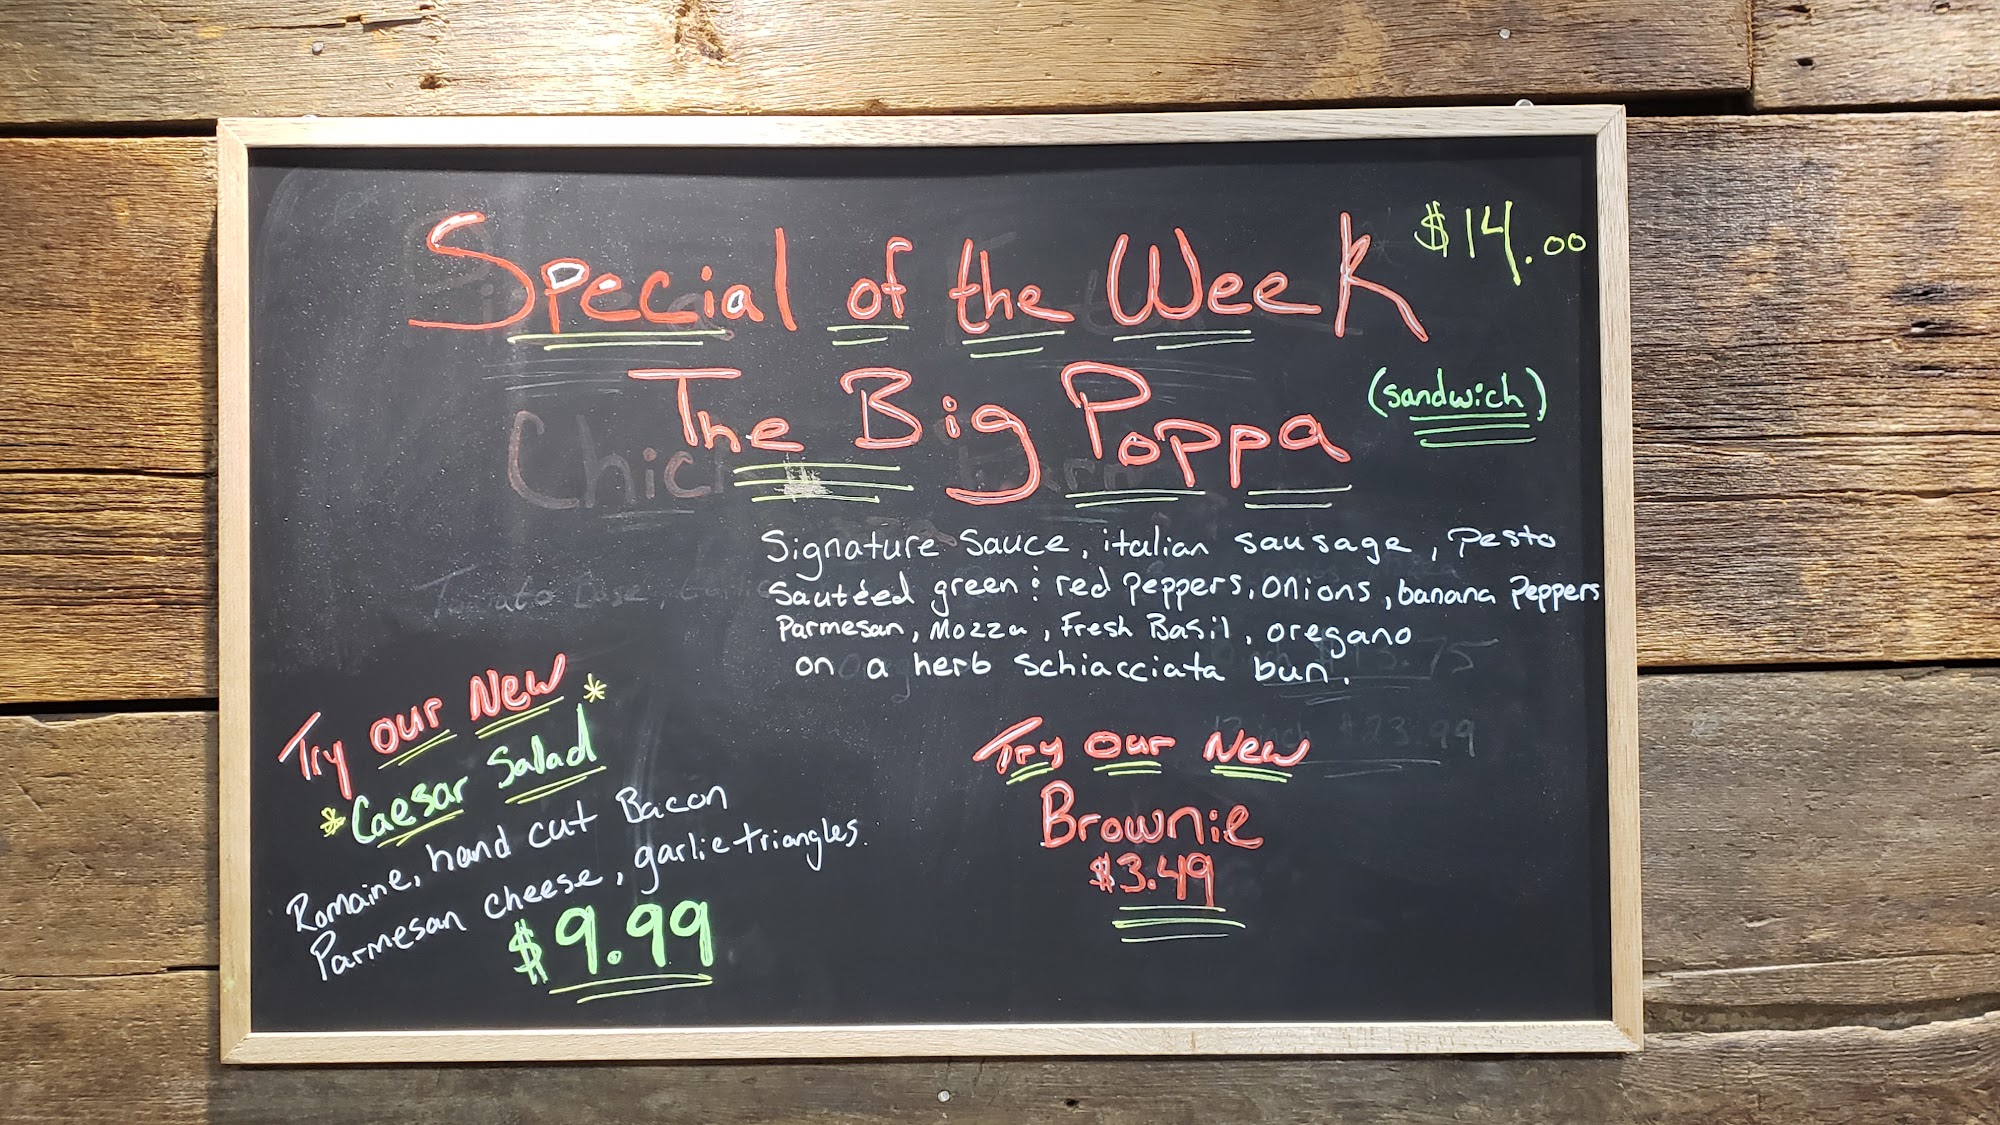 Special of the Week
$14.00
The Big Poppa
(sandwich)
Signature Sauce, italian sausage, Pesto
Sautéed green & red peppers, onions, banana Peppers
Parmesan, Mozza, Fresh Basil, oregano
on a herb schiacciata bun.
Try our New
*Caesar Salad*
Romaine, hand cut Bacon
Parmesan cheese, garlic triangles.
$9.99
Try Our New
Brownie
$3.49
12 inch $23.99